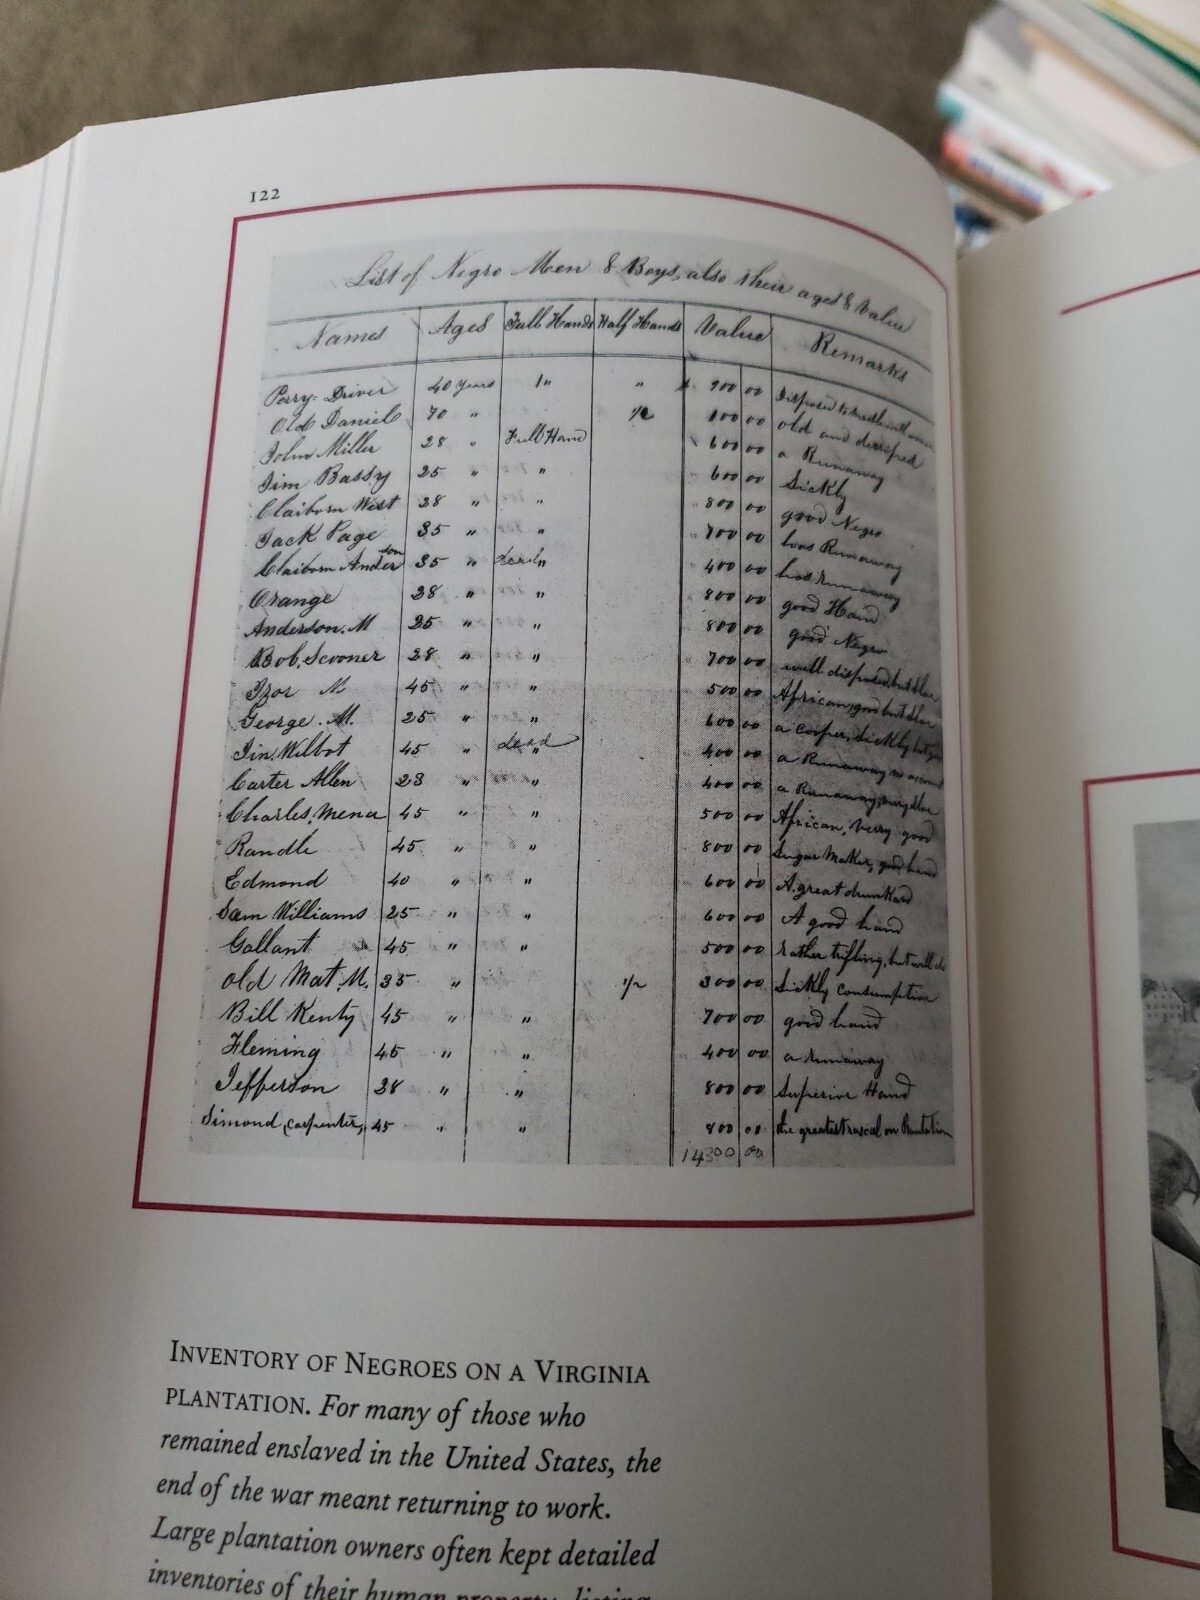 122
List of Negro Men & Boys, also their aged & Value
Names Ages Full Hands Half Hands Value Remarks
Perry Driver 40 Years 1 " " 900 00 Disposed to
Old Daniel 70 " 1/2 100 00 old and
John Miller 28 " Full Hand 600 00 a Runaway
Jim Bassy 25 " " 600 00 Sickly
Claiborn West 28 " " 800 00 good Negro
Jack Page 35 " " 700 00 has Runaway
Claiborn Anderson 35 " dead " 400 00 has runaway
Orange 28 " " 800 00 good Hand
Anderson. M 25 " " 800 00 good Negro
Bob. Scooner 28 " " 700 00 well disposed but
M 45 " " 500 00 African, good but
George. M. 25 " " 600 00 a Cooper, Sickly but
Jim. Wilbot 45 " dead " 400 00 a Runaway no account
Carter Allen 23 " " 400 00 a Runaway, very
Charles, Mena 45 " " 500 00 African, Verry good
Randle 45 " " 800 00 Sugar Maker, good hand
Edmond 40 " " 600 00 A great drunkard
Sam Williams 25 " " 600 00 A good hand
Gallant 45 " " 500 00 rather trifling, but will do
old Mat. M. 35 " 1/2 300 00 Sickly consumptive
Bill Kenty 45 " " 700 00 good hand
Fleming 45 " " 400 00 a runaway
Jefferson 28 " " 800 00 Superior Hand
Simond, carpenter, 45 " " 800 00 the greatest rascal on Plantation
14300 00
INVENTORY OF NEGROES ON A VIRGINIA
PLANTATION. For many of those who
remained enslaved in the United States, the
end of the war meant returning to work.
Large plantation owners often kept detailed
inventories of their human property, listing